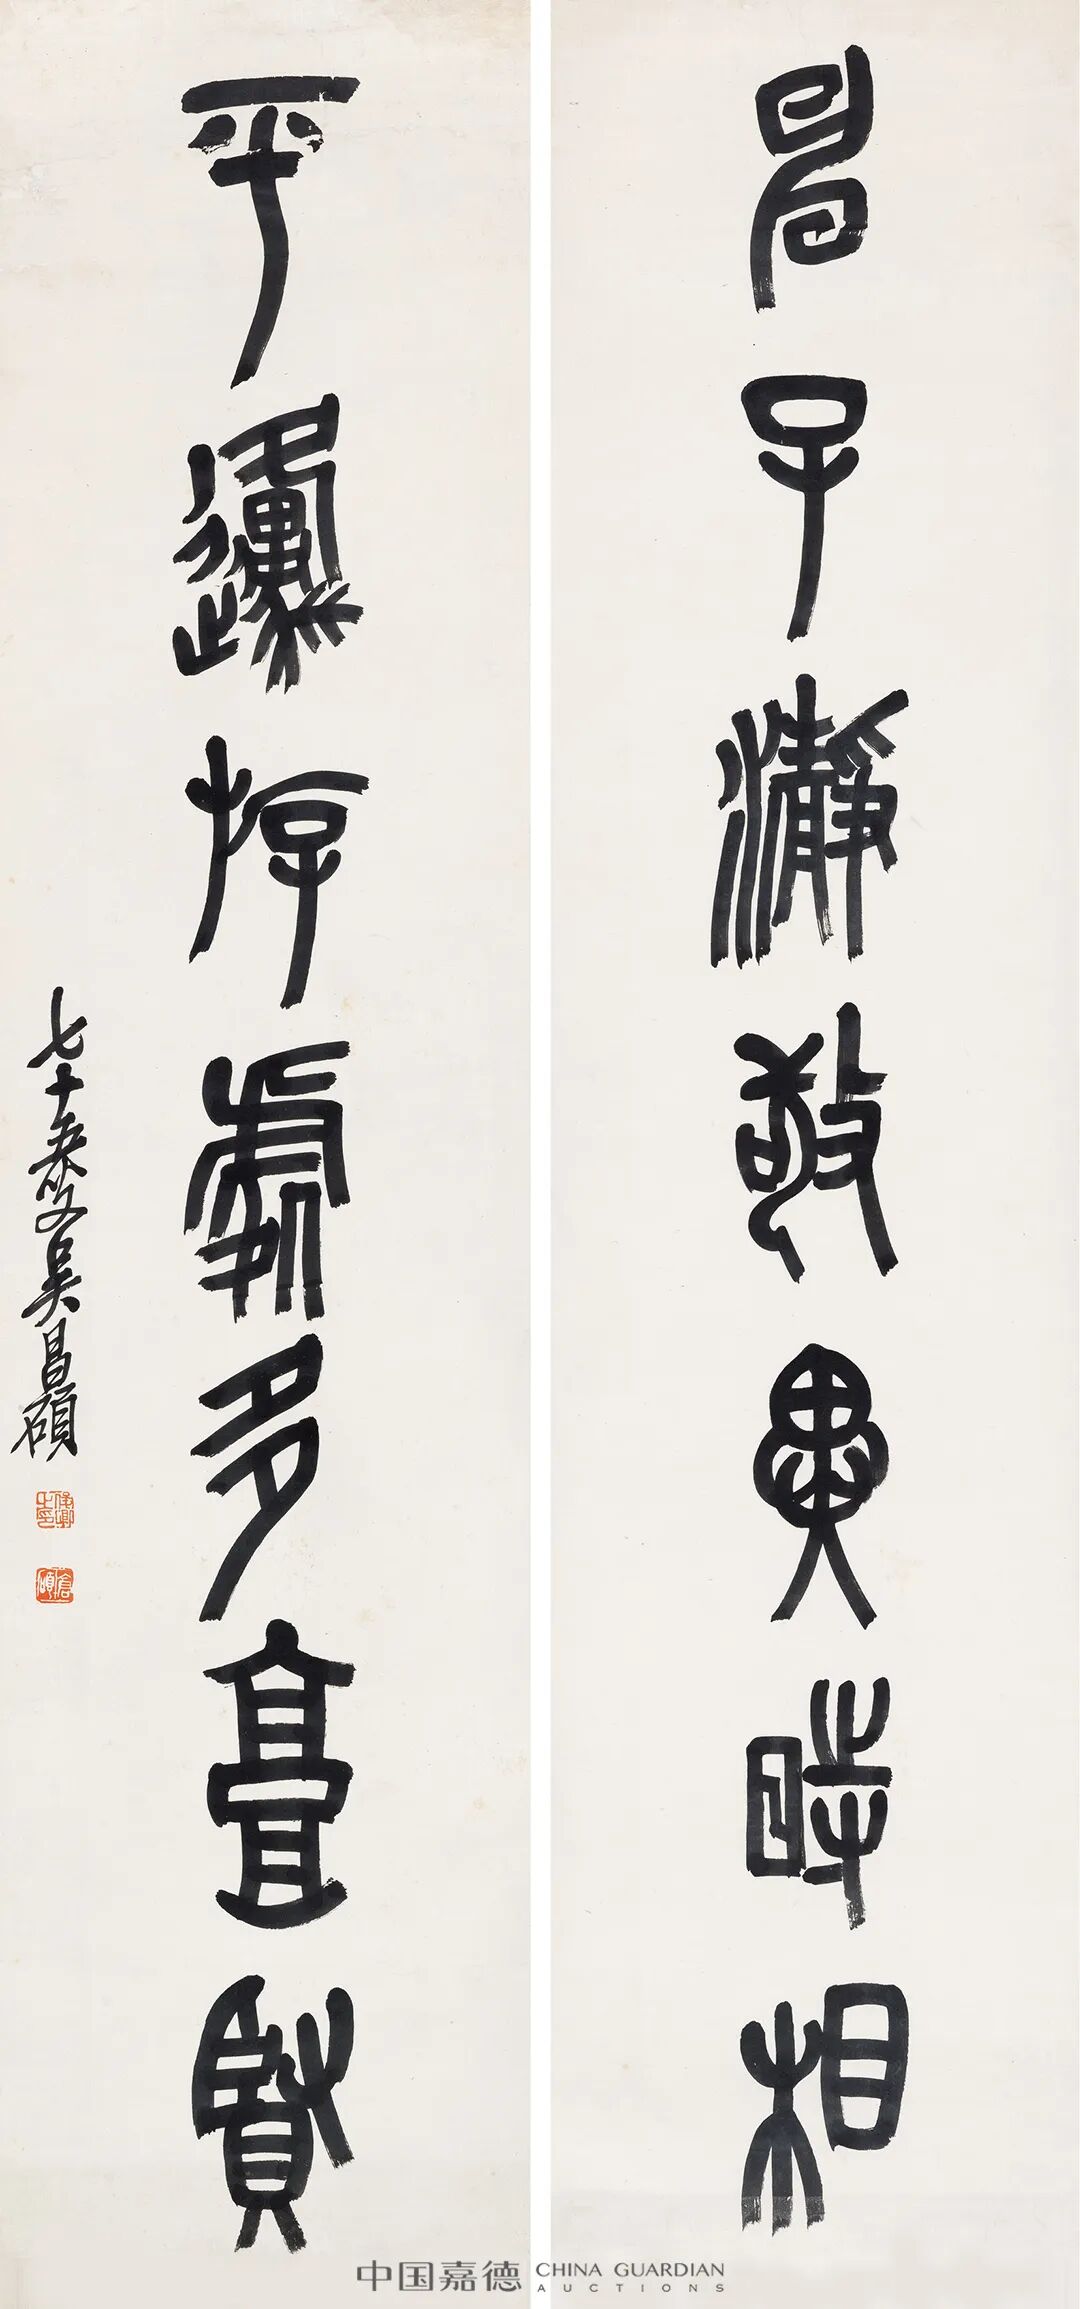 君子瀞敬異時相
平邍斿處多賢
七十五叟吳昌碩
俊卿之印
倉碩
中国嘉德 CHINA GUARDIAN AUCTIONS